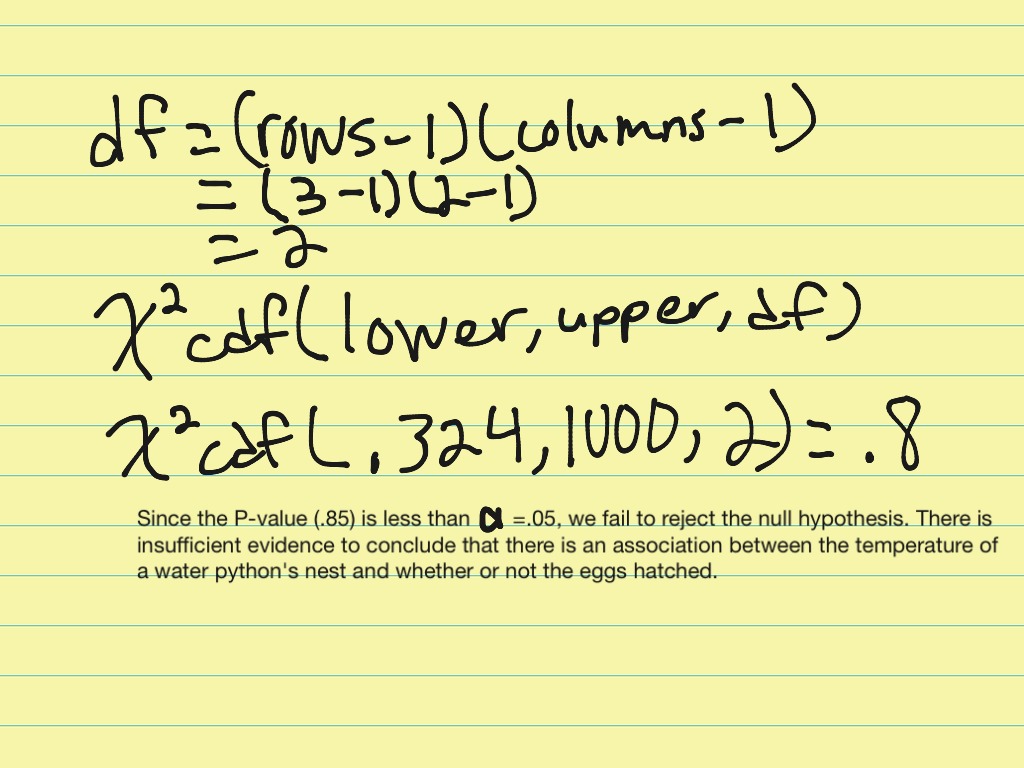 df = (rows-1)(columns-1)
= (3-1)(2-1)
= 2
χ²cdf(lower, upper, df)
χ²cdf(.324, 1000, 2) = .8
Since the P-value (.85) is less than α =.05, we fail to reject the null hypothesis. There is
insufficient evidence to conclude that there is an association between the temperature of
a water python's nest and whether or not the eggs hatched.